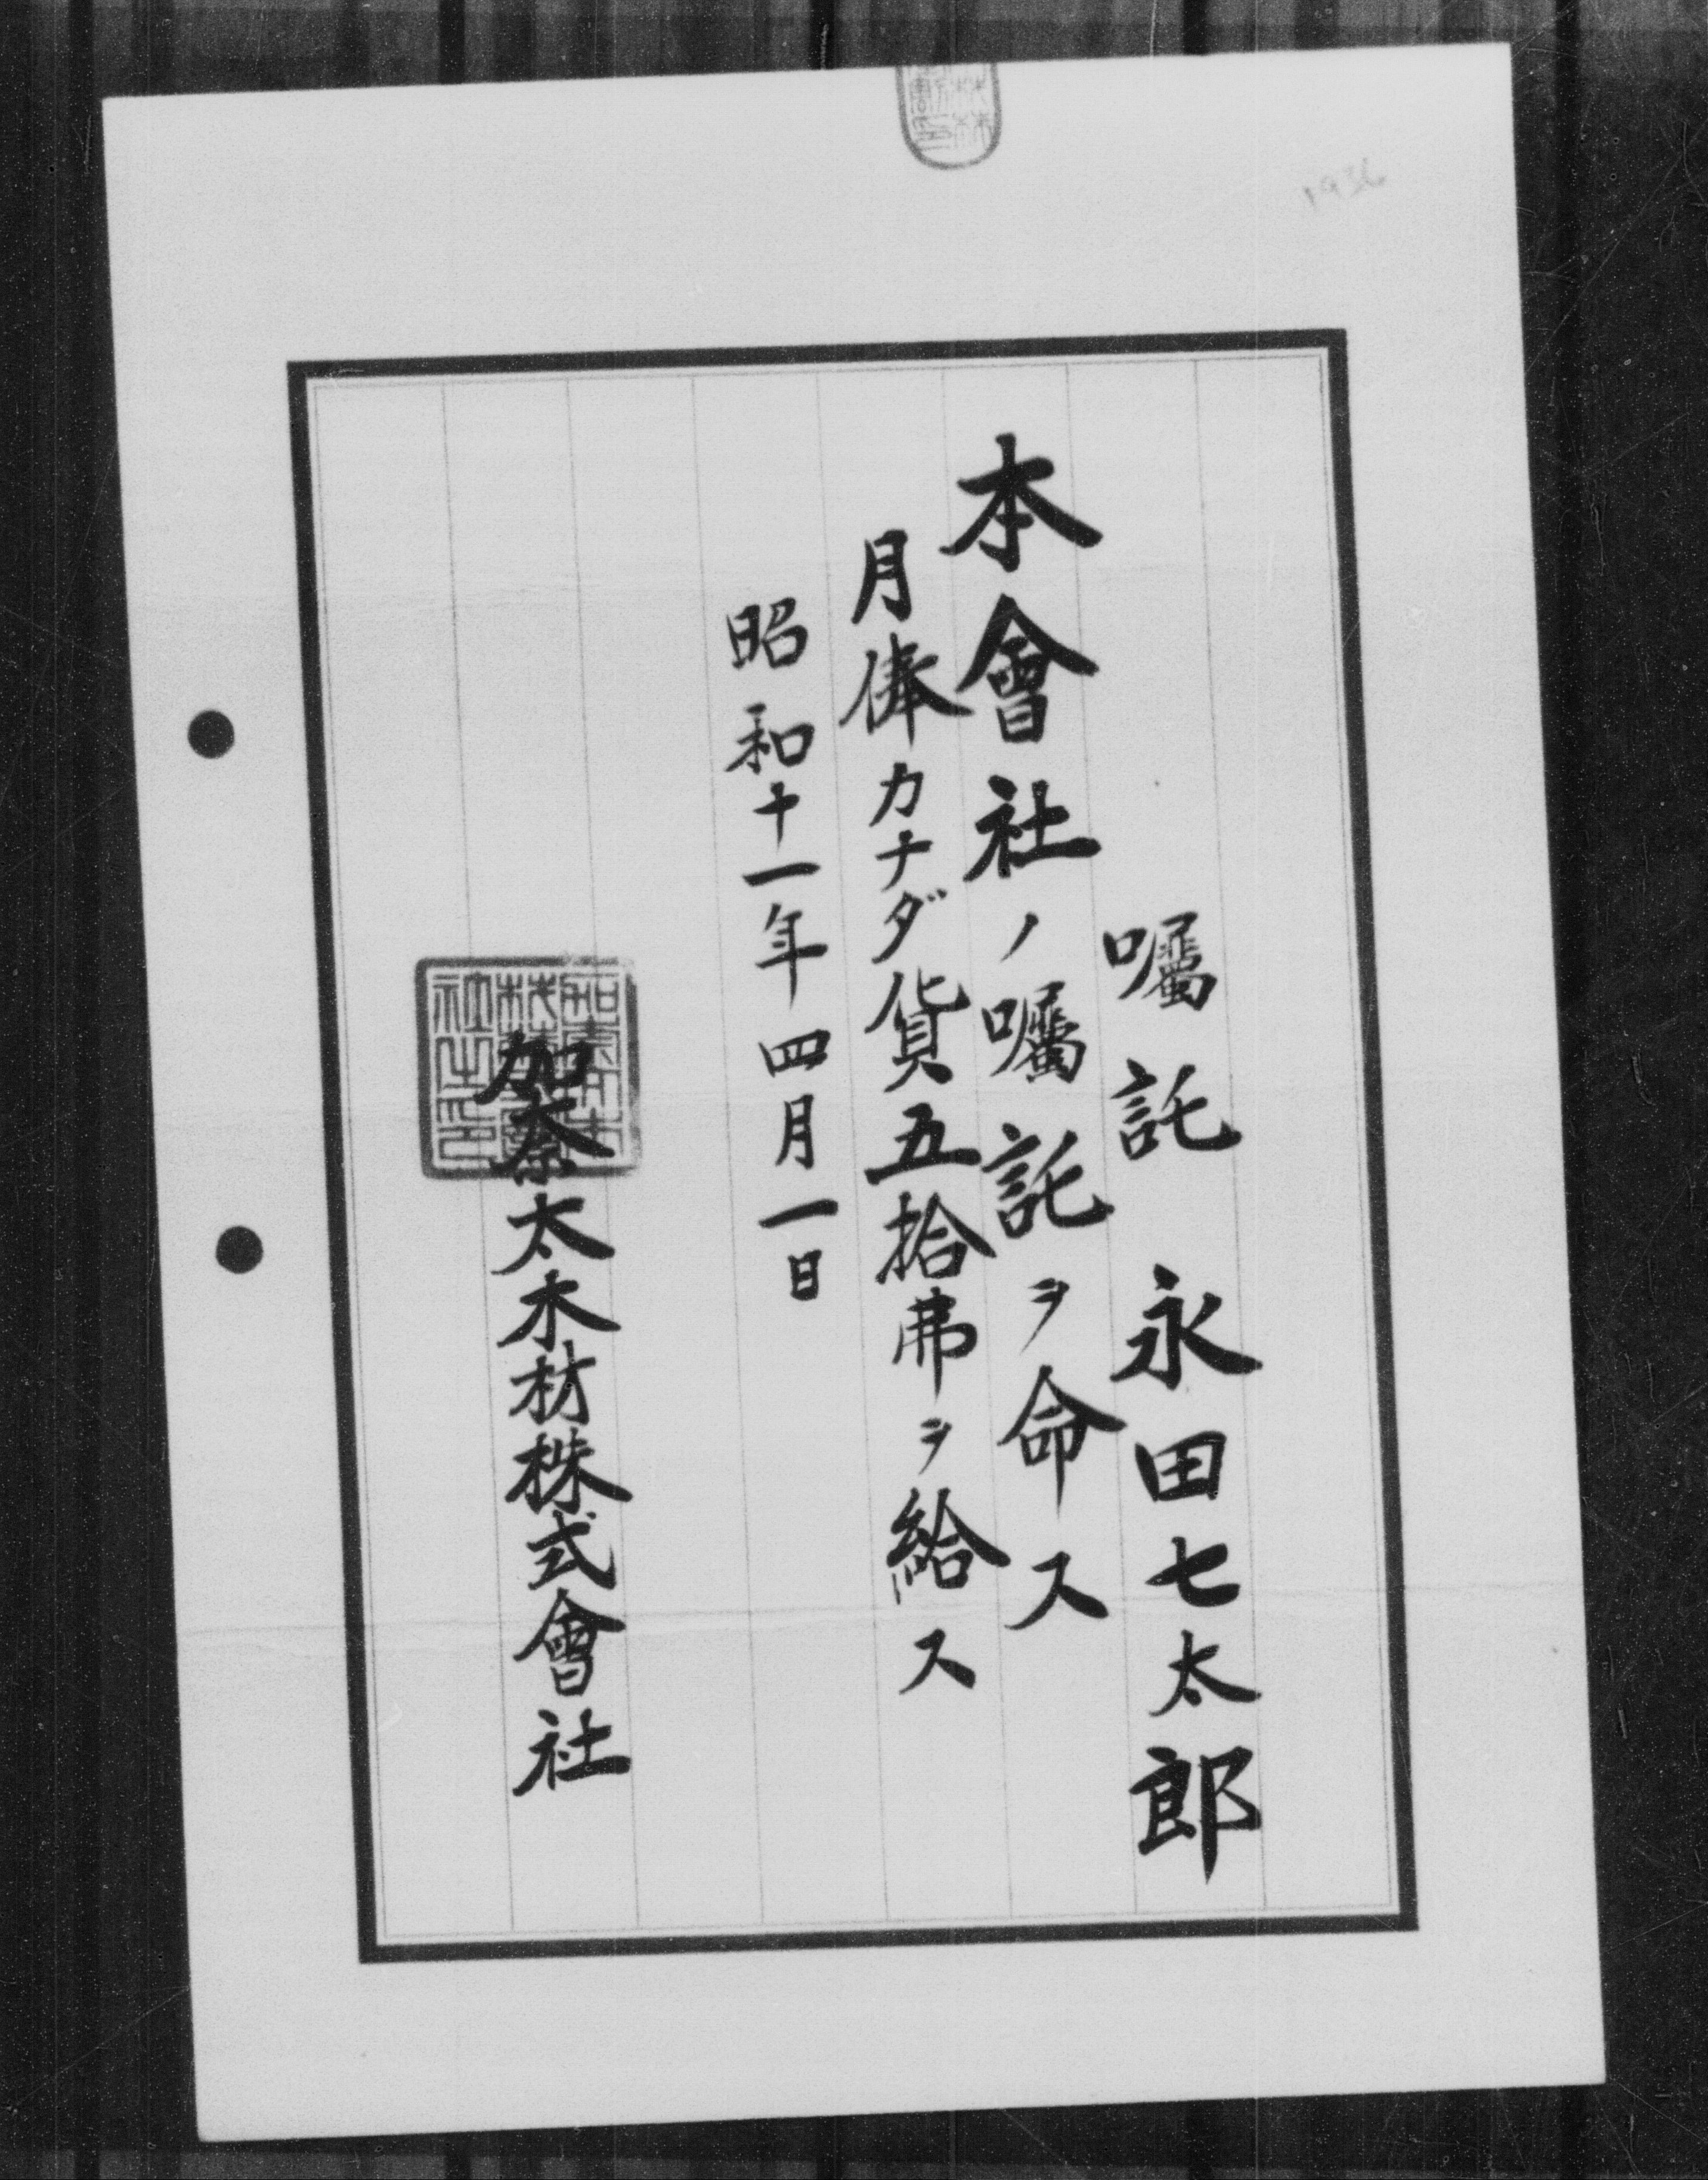 1936
囑託 永田七太郎
本會社ノ囑託ヲ命ス
月俸カナダ貨五拾弗ヲ給ス
昭和十一年四月一日
加奈太木材株式會社